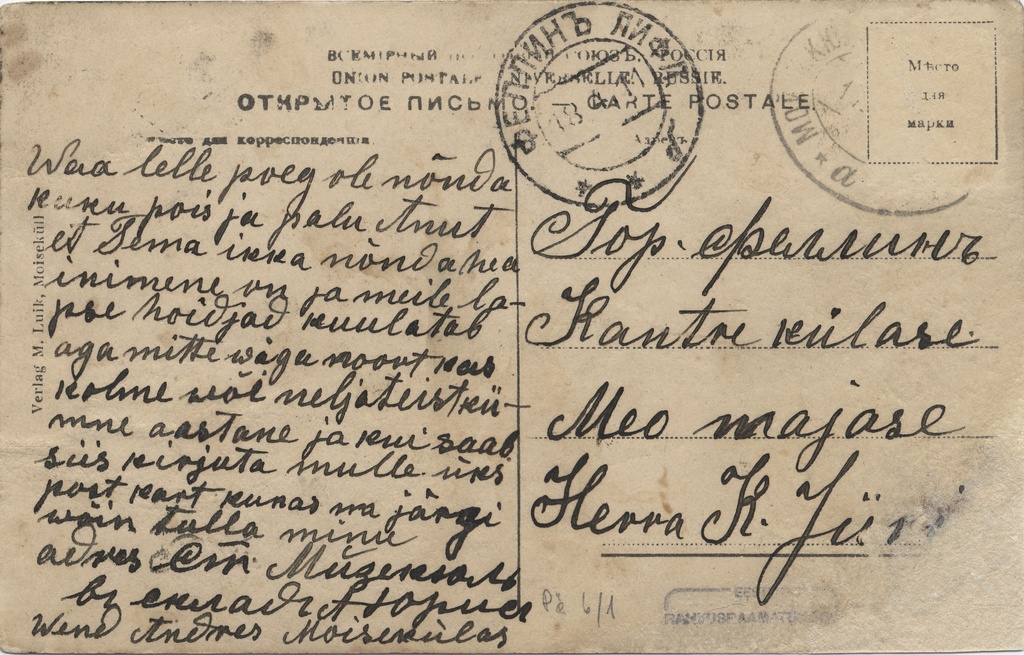 ВСЕМІРНЫЙ СОЮЗЪ. РОССІЯ
UNION POSTALE UNIVERSELLE. RUSSIE.
ОТКРЫТОЕ ПИСЬМО. CARTE POSTALE.
Мѣсто для корреспонденціи.
Адресъ.
Мѣсто
для
марки
ФЕЛЛИНЪ ЛИФЛ
18
а
Verlag M. Luik, Moiseküll
Waa lelle poeg ole nõnda
kuku pois ja palu Anut
et Tema ikka nõnda hea
inimene on ja meile la-
pse hoidjad kuulatab
aga mitte wäga noort kas
kolme wõi neljateistkü-
mne aastane ja kui saab
siis kirjuta mulle üks
post kart kunas ma järgi
wõin tulla minu
adres Ст Мизекюль
въ складъ А Юриса
Wend Andres Moisekülas
Гор. Феллинъ
Kantre külase
Meo majase
Herra K. Jüri
Pä 6/1
EESTI